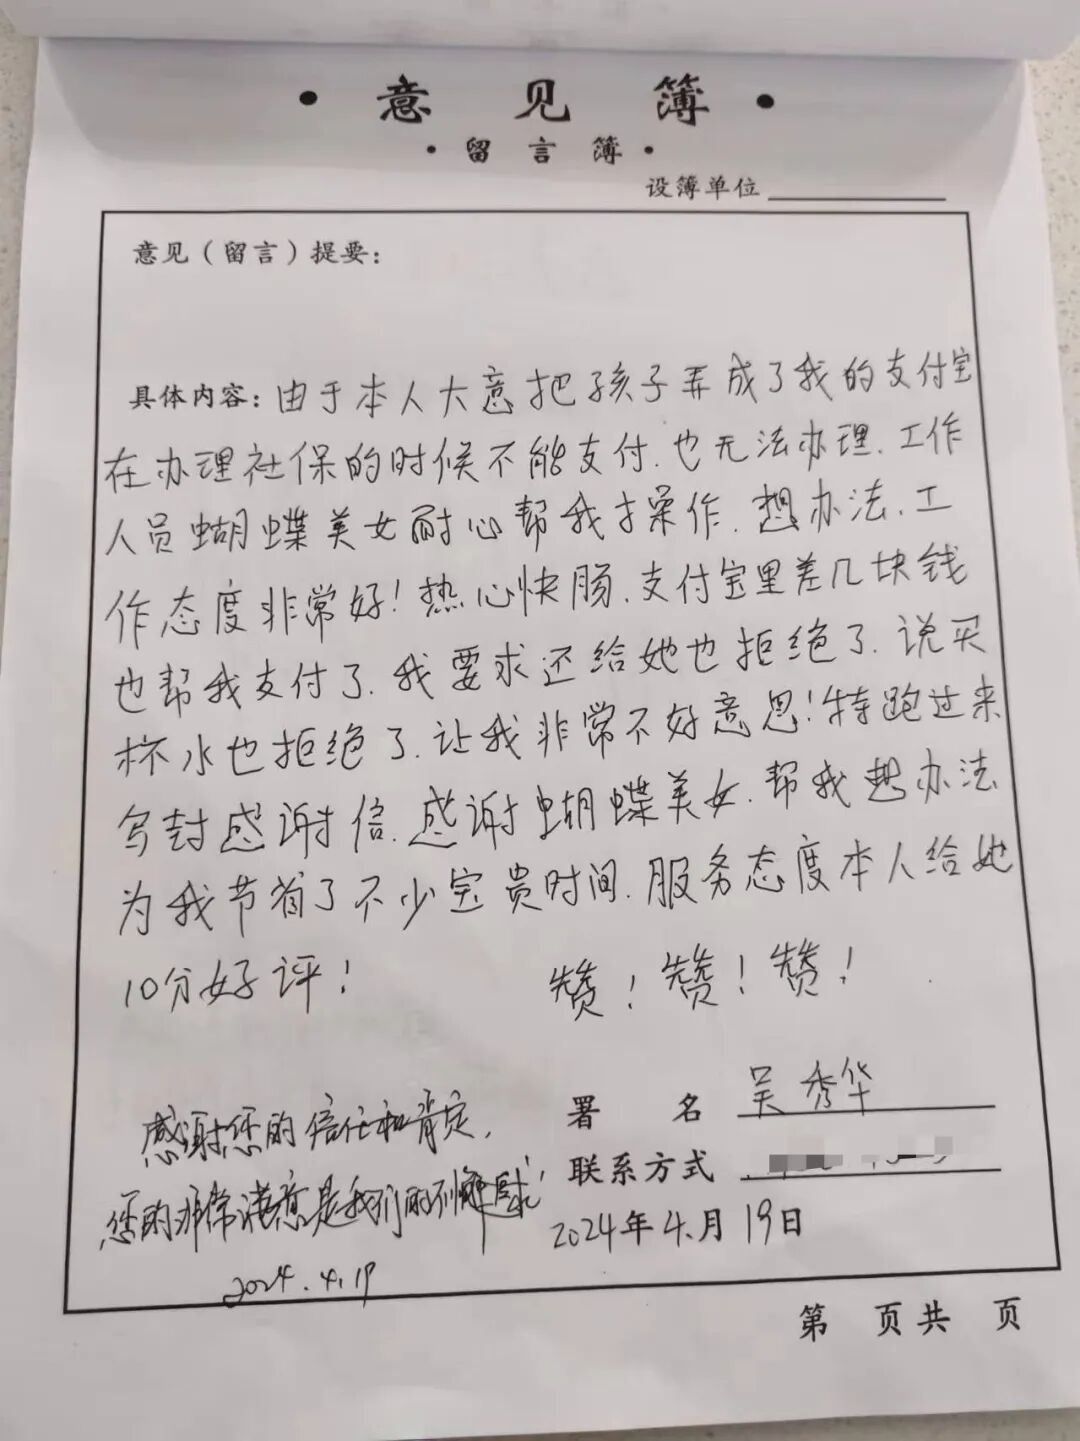 ·意见簿·
·留言簿·
设簿单位
意见（留言）提要：
具体内容：由于本人大意把孩子弄成了我的支付宝
在办理社保的时候不能支付.也无法办理.工作
人员蝴蝶美女耐心帮我操作.想办法.工
作态度非常好！热心快肠.支付宝里差几块钱
也帮我支付了.我要求还给她也拒绝了.说买
杯水也拒绝了.让我非常不好意思！特跑过来
写封感谢信.感谢蝴蝶美女.帮我想办法
为我节省了不少宝贵时间.服务态度本人给她
10分好评！ 赞！赞！赞！
署名 吴秀华
联系方式
2024年4月19日
感谢您的信任和肯定，
您的非常满意是我们的不懈追求！
2024.4.19
第 页共 页